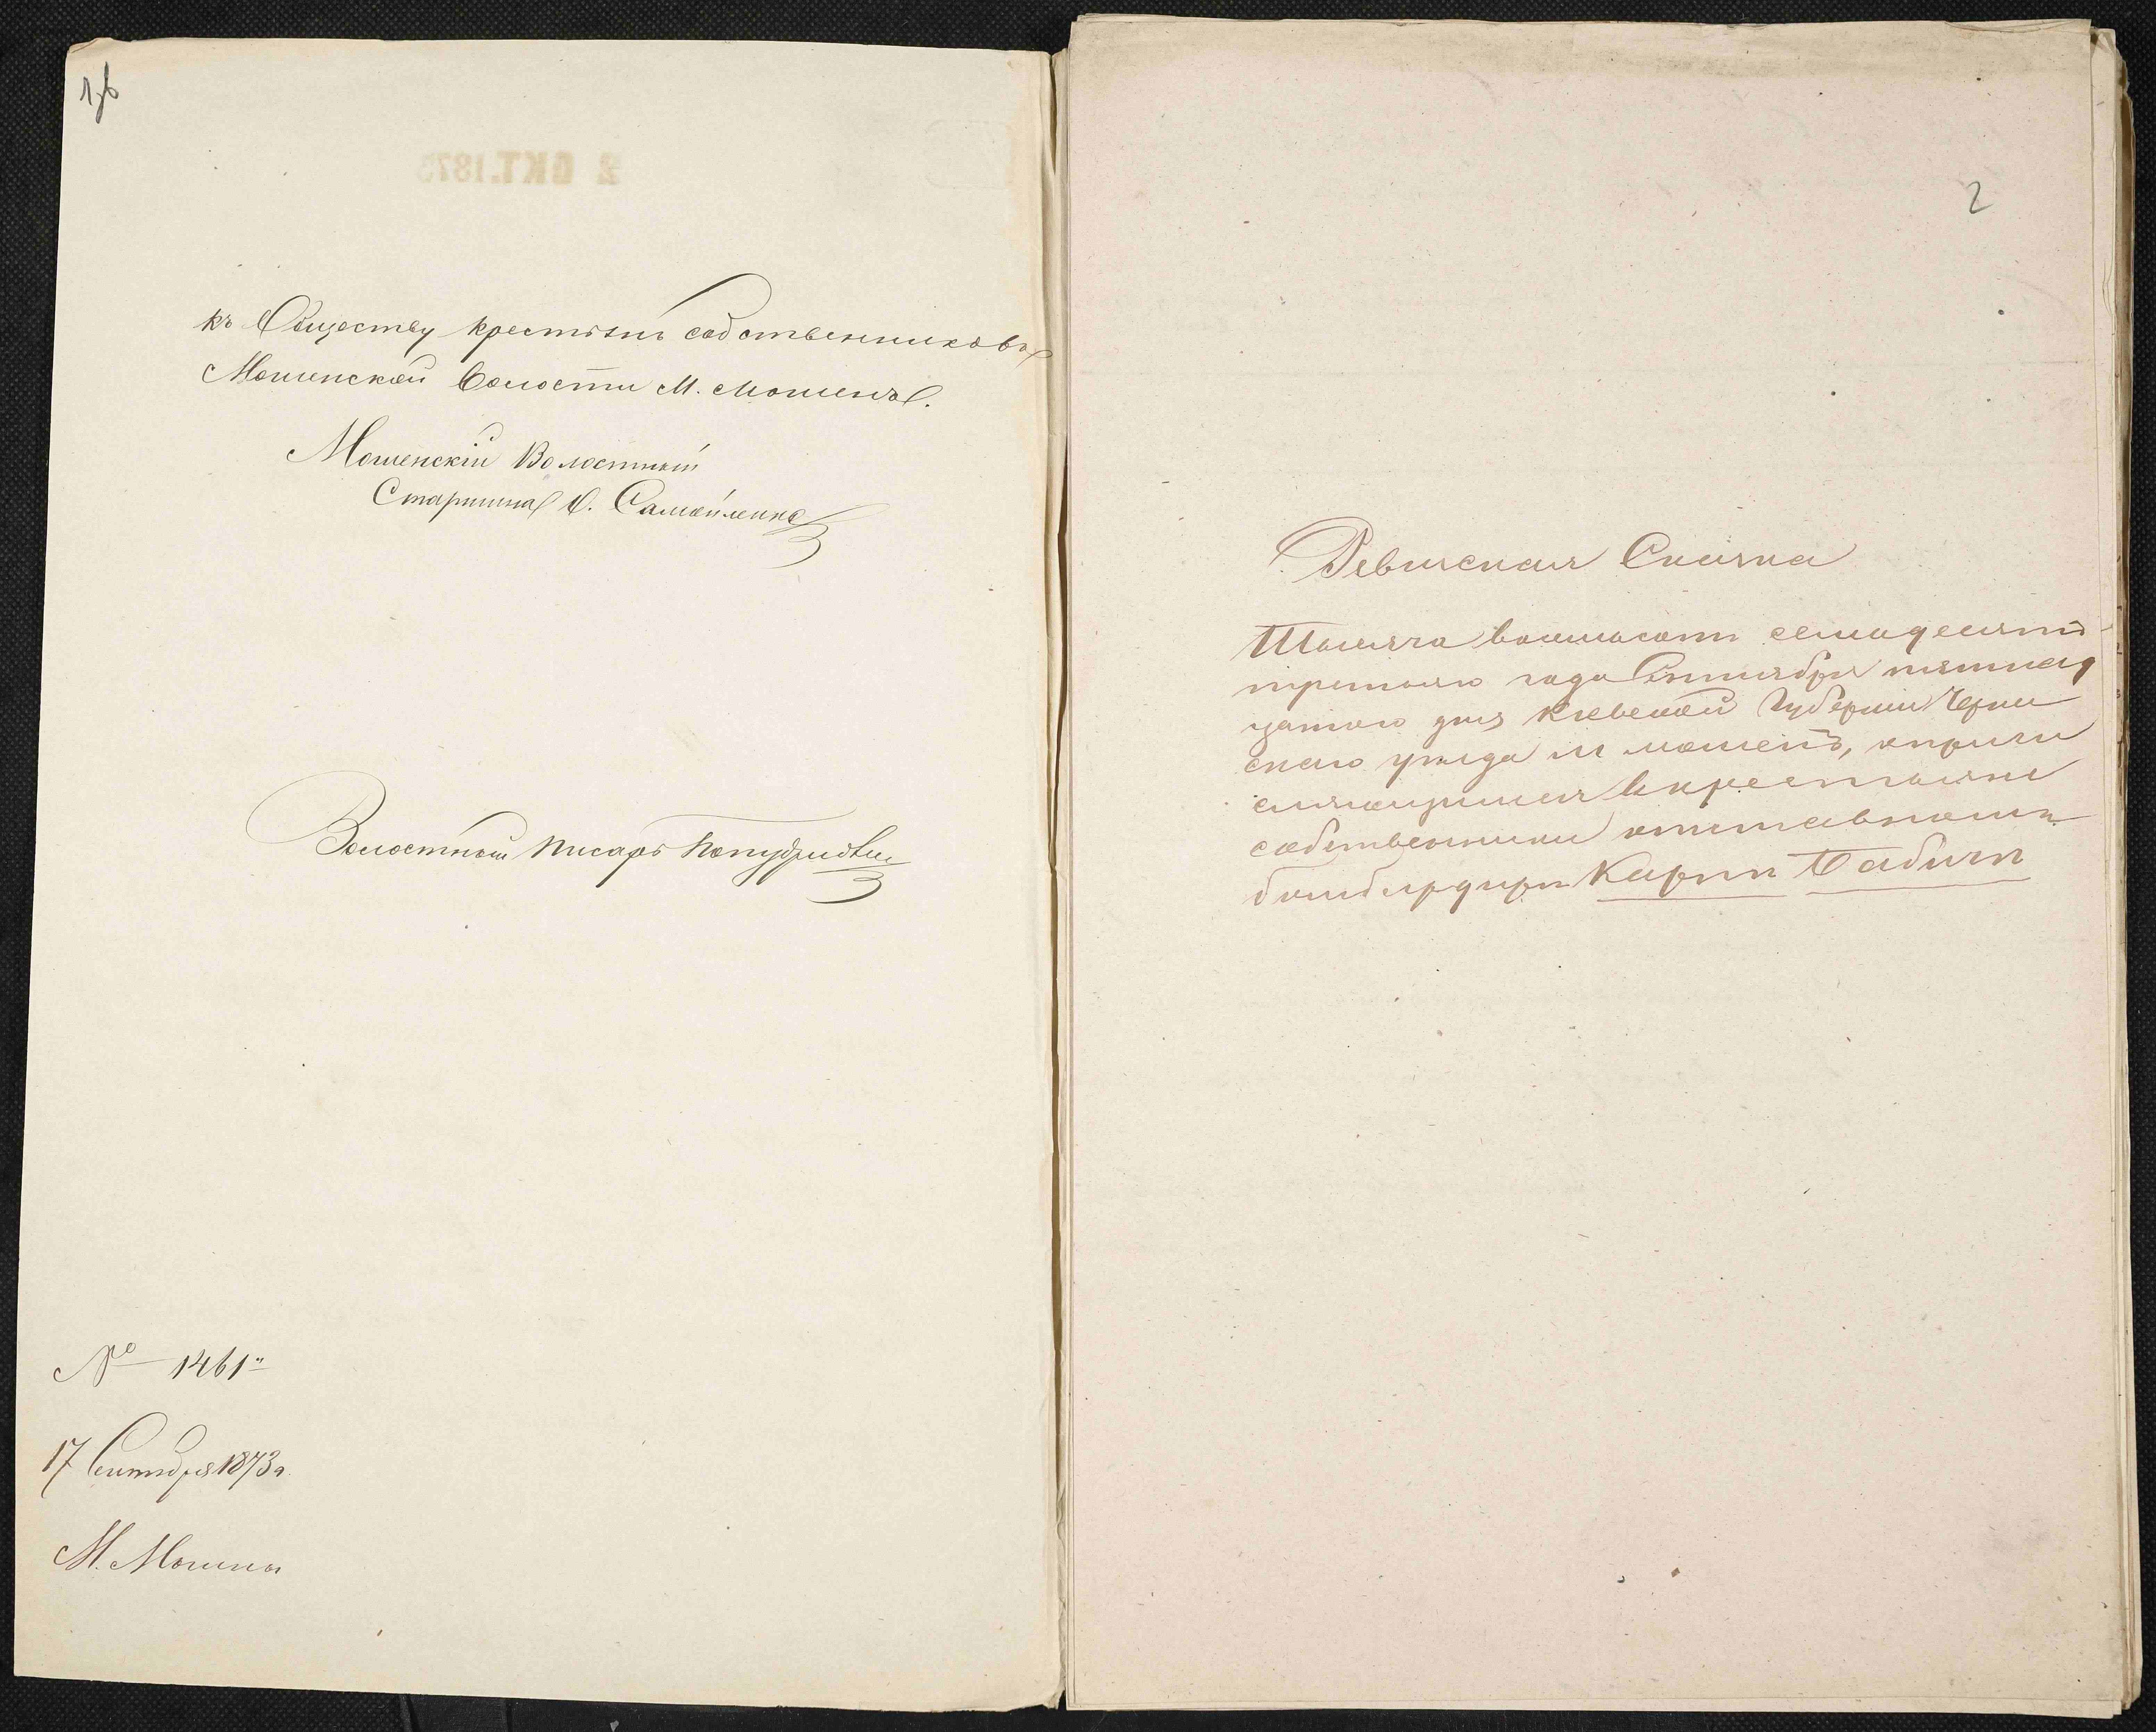 1об
2 ОКТ. 1873
къ Обществу крестьянъ собственниковъ
Мошенской Волости М. Мошенъ.
Мошенскій Волостный
Старшина Самойленко
Волостный Писарь
№ 1461
17 Сентября 1873 г.
М. Мошны
2
Ревизская Сказка
Тысяча восимьсотъ семидесятъ
третьяго года Сентября пятнад
цатого дня Кіевской Губерніи Черка
скаго уезда м мошенъ, о
в крестьяне
собственники отставнаго
бомбардира Карпъ Бабичъ